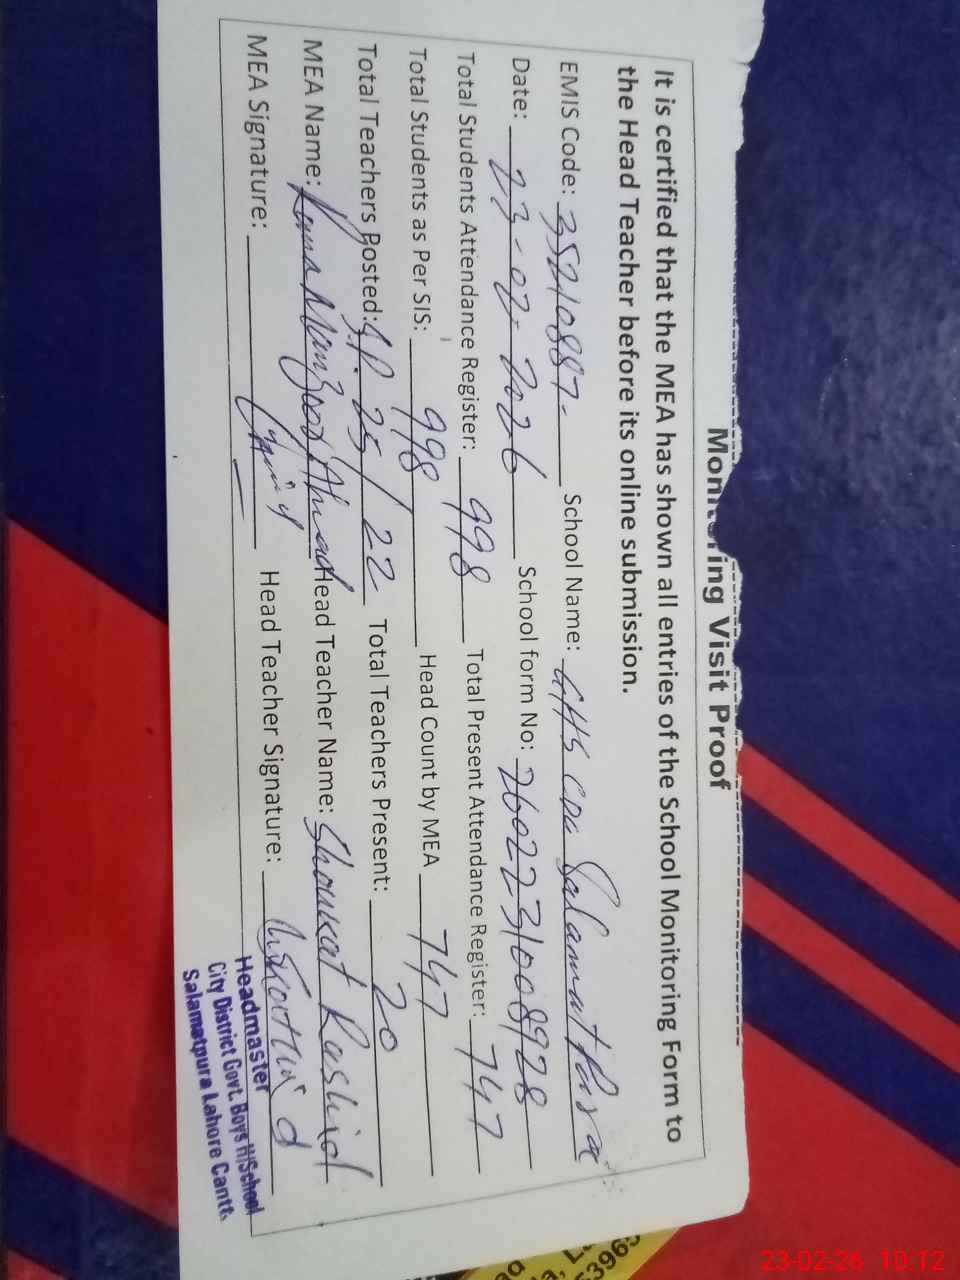 Monitoring Visit Proof
It is certified that the MEA has shown all entries of the School Monitoring Form to
the Head Teacher before its online submission.
EMIS Code: 35210887- School Name: GHS CDG Salamat Pura
Date: 23-02-2026 School form No: 26022231008928
Total Students Attendance Register: 998 Total Present Attendance Register: 747
Total Students as Per SIS: 998 Head Count by MEA 747
Total Teachers Posted: S.P. 25/22 Total Teachers Present: 20
MEA Name: Rana Manzoor Ahmad Head Teacher Name: Shoukat Rashid
MEA Signature: Head Teacher Signature:
Headmaster
City District Govt. Boys H/School
Salamatpura Lahore Cantt.
5396
23-02-26 10:12